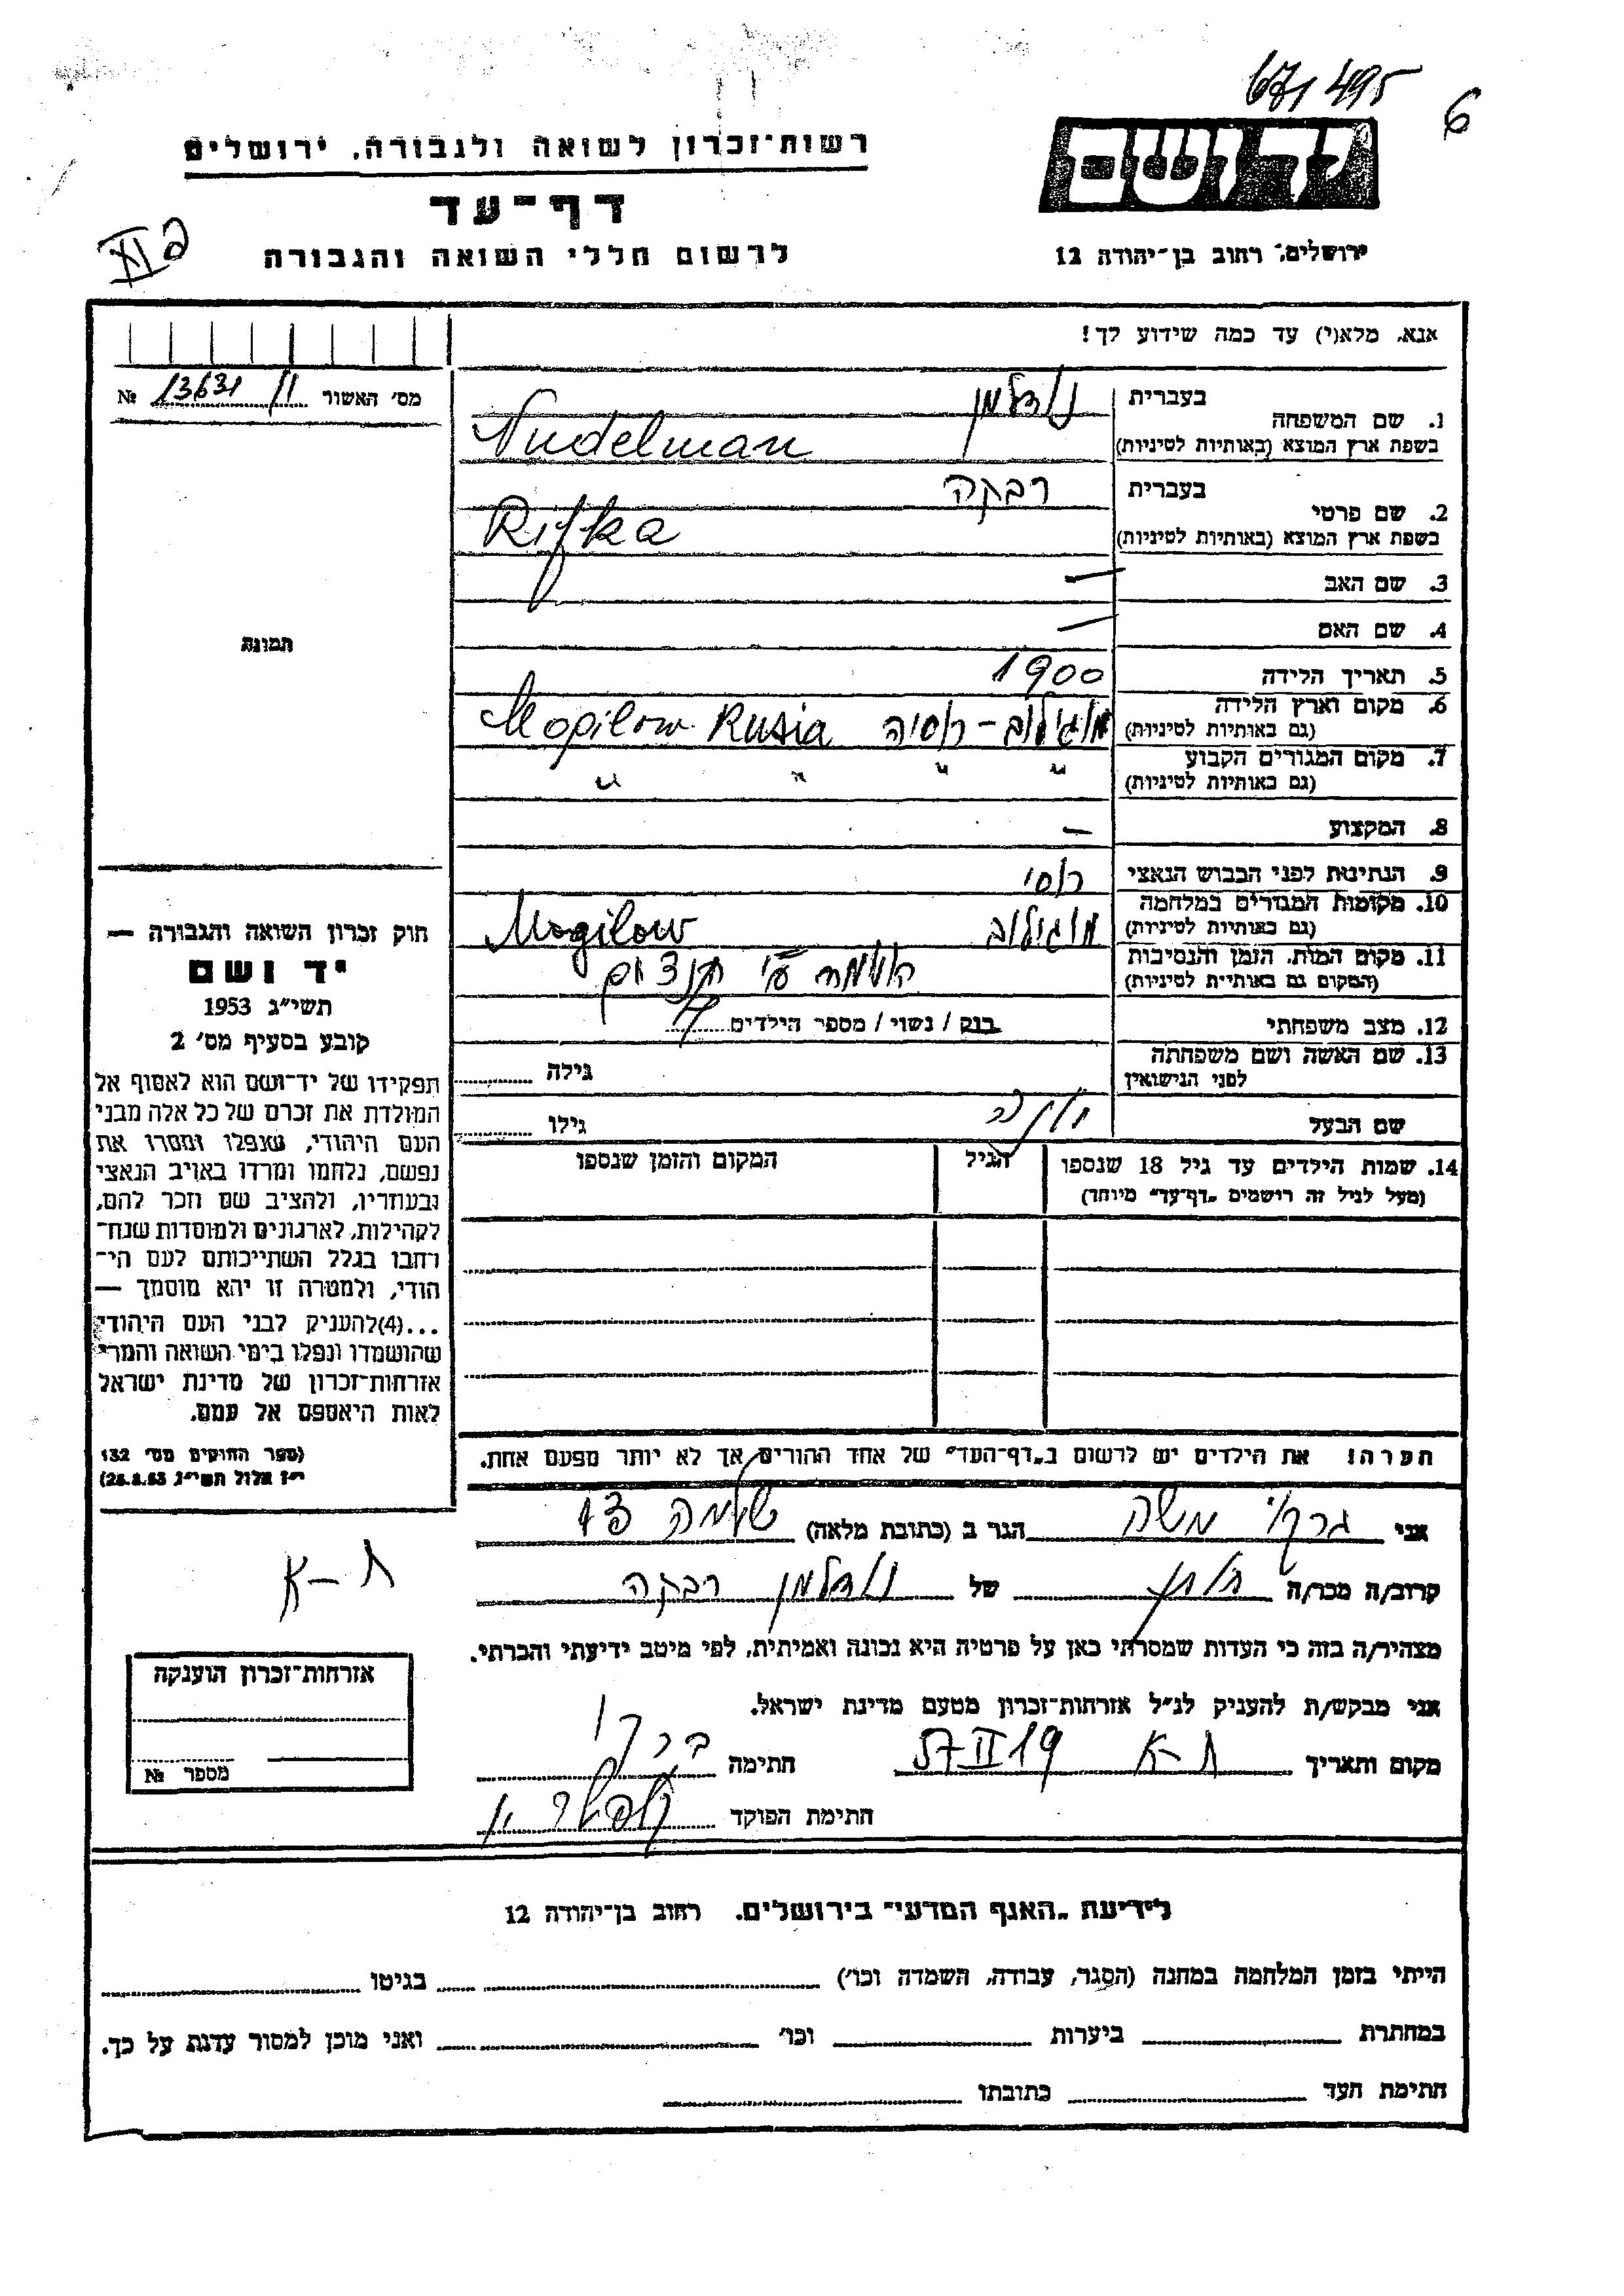 671495
6
רשות־זכרון לשואה ולגבורה, ירושלים
יד ושם
דף־עד
לרשום חללי השואה והגבורה
ירושלים, רחוב בן־יהודה 12
אנא, מלא(י) עד כמה שידוע לך!
מס׳ האשור 11/13631 №
1. שם המשפחה בעברית נודלמן
בשפת ארץ המוצא (באותיות לטיניות) Nudelman
2. שם פרטי בעברית רבקה
בשפת ארץ המוצא (באותיות לטיניות) Rifka
3. שם האב —
4. שם האם —
תמונה
5. תאריך הלידה 1900
6. מקום וארץ הלידה מוגילוב - רוסיה Mogilow Rusia
(גם באותיות לטיניות)
7. מקום המגורים הקבוע " " " "
(גם באותיות לטיניות)
8. המקצוע —
9. הנתינות לפני הכבוש הנאצי רוסי
10. מקומות המגורים במלחמה מוגילוב Mogilow
(גם באותיות לטיניות)
11. מקום המות, הזמן והנסיבות
(המקום גם באותיות לטיניות)
12. מצב משפחתי רווק / נשוי / מספר הילדים
13. שם האשה ושם משפחתה גילה
לפני הנישואין
שם הבעל גילו
14. שמות הילדים עד גיל 18 שנספו הגיל המקום והזמן שנספו
(מעל לגיל זה רושמים „דף־עד״ מיוחד)
חוק זכרון השואה והגבורה —
יד ושם
תשי״ג 1953
קובע בסעיף מס׳ 2
תפקידו של יד־ושם הוא לאסוף אל
המולדת את זכרם של כל אלה מבני
העם היהודי, שנפלו ומסרו את
נפשם, נלחמו ומרדו באויב הנאצי
ובעוזריו, ולהציב שם וזכר להם,
לקהילות, לארגונים ולמוסדות שנח־
רבו בגלל השתייכותם לעם הי־
הודי, ולמטרה זו יהא מוסמך —
...(4) להעניק לבני העם היהודי
שהושמדו ונפלו בימי השואה והמרי
אזרחות־זכרון של מדינת ישראל
לאות היאספם אל עמם.
(ספר החוקים מס׳ 132
י״ז אלול תשי״ג, 28.8.53)
הערה! את הילדים יש לרשום ב„דף־העד״ של אחד ההורים אך לא יותר מפעם אחת.
אני משה הגר ב (כתובת מלאה) שלמה 43
קרוב/ה מכר/ה חותן של נודלמן רבקה
מצהיר/ה בזה כי העדות שמסרתי כאן על פרטיה היא נכונה ואמיתית, לפי מיטב ידיעתי והכרתי.
אני מבקש/ת להעניק לנ״ל אזרחות־זכרון מטעם מדינת ישראל.
מקום ותאריך ת-א 19 II 57 חתימה
חתימת הפוקד
ת-א
אזרחות־זכרון הוענקה
מספר №
לידיעת „האגף המדעי״ בירושלים, רחוב בן־יהודה 12
הייתי בזמן המלחמה במחנה (הסגר, עבודה, השמדה וכו׳) בגיטו
במחתרת ביערות וכו׳ ואני מוכן למסור עדות על כך.
חתימת העד כתובתו